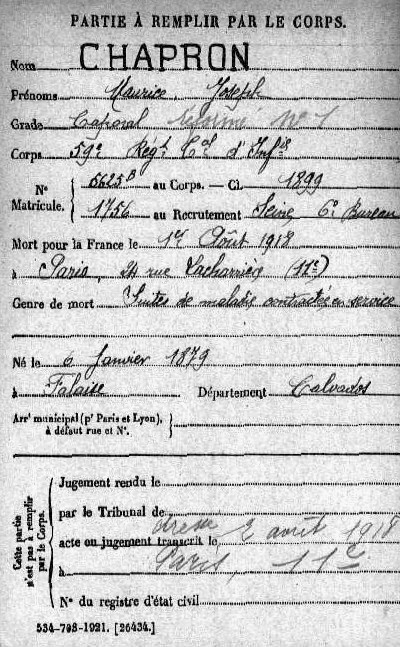 PARTIE À REMPLIR PAR LE CORPS.
Nom CHAPRON
Prénoms Maurice, Joseph
Grade Caporal réformé N° 1
Corps 59e Regt Cal d'Infie
N° Matricule. { 5625B au Corps. — Cl. 1899
1756 au Recrutement Seine 6e Bureau
Mort pour la France le 1er Août 1918
à Paris, 24 rue Lacharrière (11e)
Genre de mort Suites de maladie contractée en service
Né le 6 Janvier 1879
à Falaise Département Calvados
Arrt municipal (pr Paris et Lyon), }
à défaut rue et N°.
Cette partie n'est pas à remplir par le Corps.
Jugement rendu le
par le Tribunal de
acte ou jugement transcrit le dressé 2 août 1918
à Paris, 11e
N° du registre d'état civil
534-708-1921. [26434.]